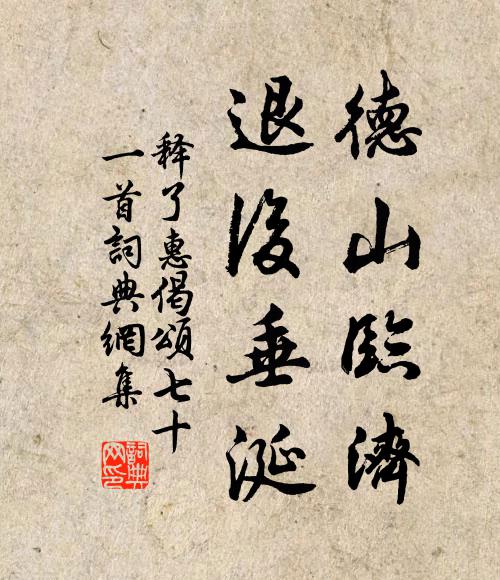 德山臨濟
退後垂涎
釋了惠偈頌七十
一首詞典網集
詞典網印